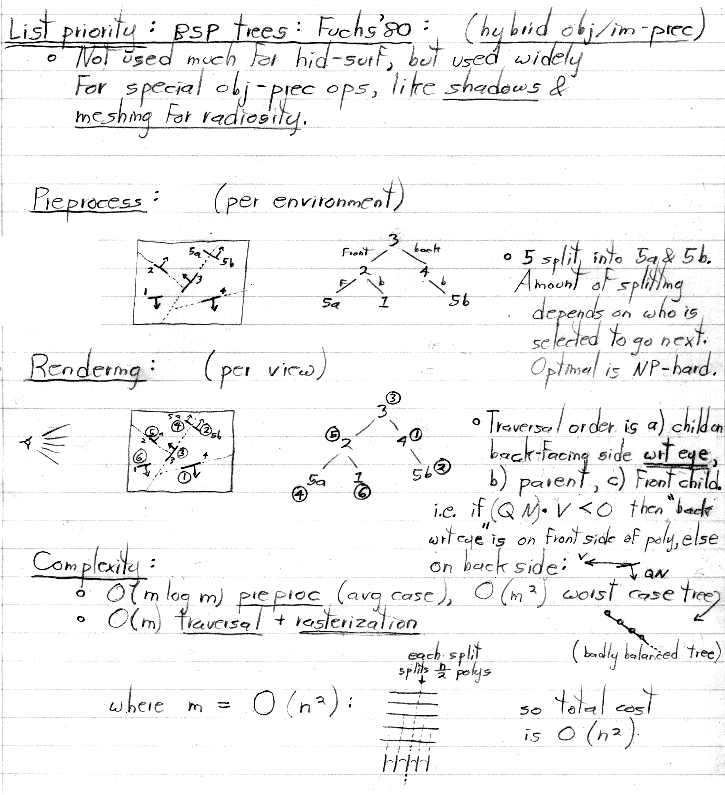 List priority: BSP trees: Fuchs '80: (hybrid obj/im-prec)
o Not used much for hid-surf, but used widely
for special obj-prec ops, like shadows &
meshing for radiosity.
Preprocess: (per environment)
5a
5b
2
3
1
4
3
Front back
2 4
F b b
5a 1 5b
o 5 split into 5a & 5b.
Amount of splitting
depends on who is
selected to go next.
Optimal is NP-hard.
Rendering: (per view)
5a
5 4 2 5b
2
3
6 3 4
1 1
3
3
5 2 4 1
5a 1 5b 2
4 6
o Traversal order is a) child on
back-facing side wrt eye,
b) parent, c) Front child.
i.e. if (QN)·V < 0 then "back
wrt eye" is on front side of poly, else
on back side: V QN
Complexity:
o O(m log m) preproc (avg case), O(m²) worst case tree
o O(m) traversal + rasterization
(badly balanced tree)
each split
splits n/2 polys
where m = O(n²):
so total cost
is O(n²)